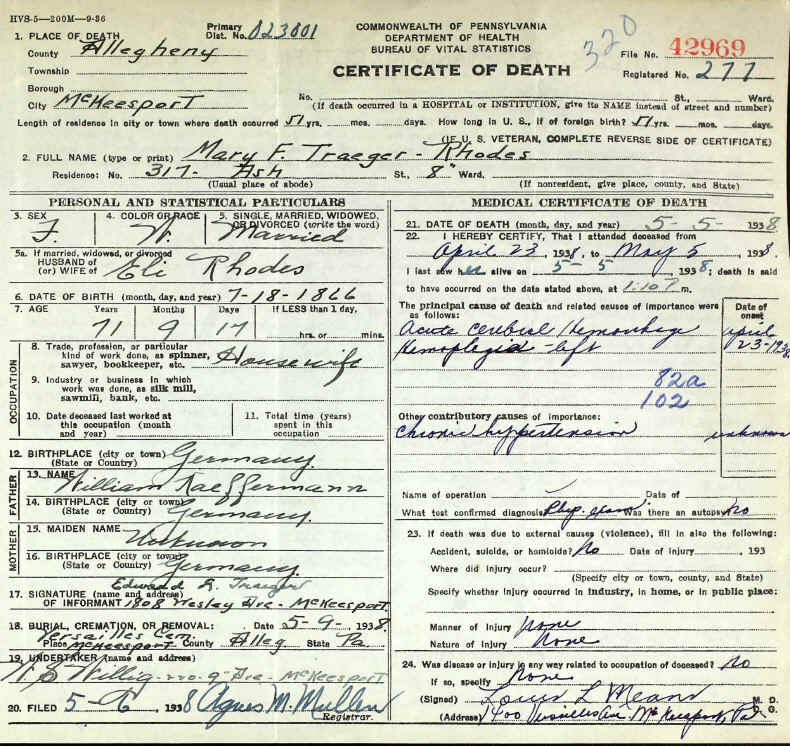 HVS-5—200M—9-36
Primary Dist. No. 023801
COMMONWEALTH OF PENNSYLVANIA
DEPARTMENT OF HEALTH
BUREAU OF VITAL STATISTICS
CERTIFICATE OF DEATH
320
File No. 42969
Registered No. 277
1. PLACE OF DEATH
County Allegheny
Township
Borough
City McKeesport
No. St., Ward.
(If death occurred in a HOSPITAL or INSTITUTION, give its NAME instead of street and number)
Length of residence in city or town where death occurred 51 yrs. mos. days. How long in U. S., if of foreign birth? 51 yrs. mos. days.
(IF U. S. VETERAN, COMPLETE REVERSE SIDE OF CERTIFICATE)
2. FULL NAME (type or print) Mary F. Traeger - Rhodes
Residence: No. 317- Ash St., 8" Ward.
(Usual place of abode) (If nonresident, give place, county, and State)
PERSONAL AND STATISTICAL PARTICULARS
3. SEX F.
4. COLOR OR RACE W.
5. SINGLE, MARRIED, WIDOWED, OR DIVORCED (write the word) Married
5a. If married, widowed, or divorced
HUSBAND of
(or) WIFE of Eli Rhodes
6. DATE OF BIRTH (month, day, and year) 7-18-1866
7. AGE Years Months Days If LESS than 1 day,
71 9 17 hrs. or mins.
OCCUPATION
8. Trade, profession, or particular kind of work done, as spinner, sawyer, bookkeeper, etc. Housewife
9. Industry or business in which work was done, as silk mill, sawmill, bank, etc.
10. Date deceased last worked at this occupation (month and year)
11. Total time (years) spent in this occupation
12. BIRTHPLACE (city or town) Germany
(State or Country)
FATHER
13. NAME William Kaeffermann
14. BIRTHPLACE (city or town)
(State or Country) Germany
MOTHER
15. MAIDEN NAME Unknown
16. BIRTHPLACE (city or town)
(State or Country) Germany
17. SIGNATURE (name and address) OF INFORMANT Edward G. Traeger
1808 Wesley Ave - McKeesport
18. BURIAL, CREMATION, OR REMOVAL: Date 5-9-1938
Versailles Cem.
Place McKeesport County Alleg State Pa.
19. UNDERTAKER (name and address)
Willig 9" Ave - McKeesport
20. FILED 5-6 1938 Agnes M. Mullen
Registrar.
MEDICAL CERTIFICATE OF DEATH
21. DATE OF DEATH (month, day, and year) 5-5-1938
22. I HEREBY CERTIFY, That I attended deceased from
April 23, 1938, to May 5, 1938.
I last saw her alive on 5-5 1938; death is said
to have occurred on the date stated above, at 1:10 P. m.
The principal cause of death and related causes of importance were as follows:
Date of onset
Acute Cerebral Hemorrhage April
Hemoplegia - left 23-1938
82a
102
Other contributory causes of importance:
Chronic hyppertension unknown
Name of operation Date of
What test confirmed diagnosis? Phy. exam Was there an autopsy? No
23. If death was due to external causes (violence), fill in also the following:
Accident, suicide, or homicide? No Date of injury 193
Where did injury occur?
(Specify city or town, county, and State)
Specify whether injury occurred in industry, in home, or in public place:
Manner of injury none
Nature of injury None
24. Was disease or injury in any way related to occupation of deceased? No
If so, specify None
(Signed) Louis L Means M. D.
D. O.
(Address) 1400 Versailles Ave McKeesport, Pa